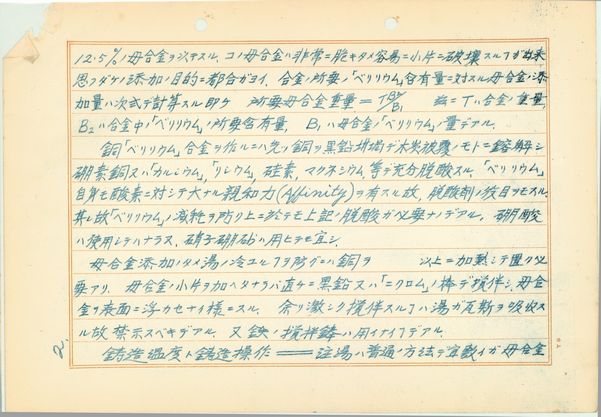 12.5%ノ母合金ヲ以テスル、コノ母合金ハ非常ニ脆キタメ容易ニ小片ニ破壊スルヿガ出来
思フダケノ添加ノ目的ニ都合ガヨイ、合金ノ所要「ベリリウム」含有量ニ対スル母合金ノ添
加量ハ次式デ計算スル即チ 所要母合金重量 = T B2/B1 玆ニTハ合金ノ重量
B2ハ合金中ノ「ベリリウム」ノ所要含有量、B1ハ母合金ノ「ベリリウム」ノ量デアル.
銅「ベリリウム」合金ヲ作ルニハ先ヅ銅ヲ黒鉛坩堝デ木炭被覆ノモトニ鎔解シ
硼素銅又ハ「カルシウム」「リシウム」硅素,マグネシウム,等デ充分脱酸スル,「ベリリウム」
自身モ酸素ニ対シテ大ナル親和力(Affinity)ヲ有スル故,脱酸剤ノ役目ヲモスル
其レ故「ベリリウム」ノ減耗ヲ防グ上ニ於テモ上記ノ脱酸ガ必要ナノデアル. 硼酸
ハ使用シテハナラヌ、硝子硼砂ハ用ヒテモ宜シ.
母合金添加ノタメ湯ノ冷エルヲ防グニハ銅ヲ 以上ニ加熱シテ置ク必
要アリ. 母合金小片ヲ加ヘタナラバ直チニ黒鉛又ハ「ニクロム」ノ棒デ攪伴シ,母合
金ヲ液面ニ浮カセナイ様ニスル. 余リ激シク攪伴スルヿハ湯ガ瓦斯ヲ吸收ス
ル故禁示スベキデアル. 又鉄ノ攪拌鋳ハ用イナイヿデアル.
鋳造温度ト鋳造操作 ══ 注湯ハ普通ノ方法デ宜敷イガ母合金
2.